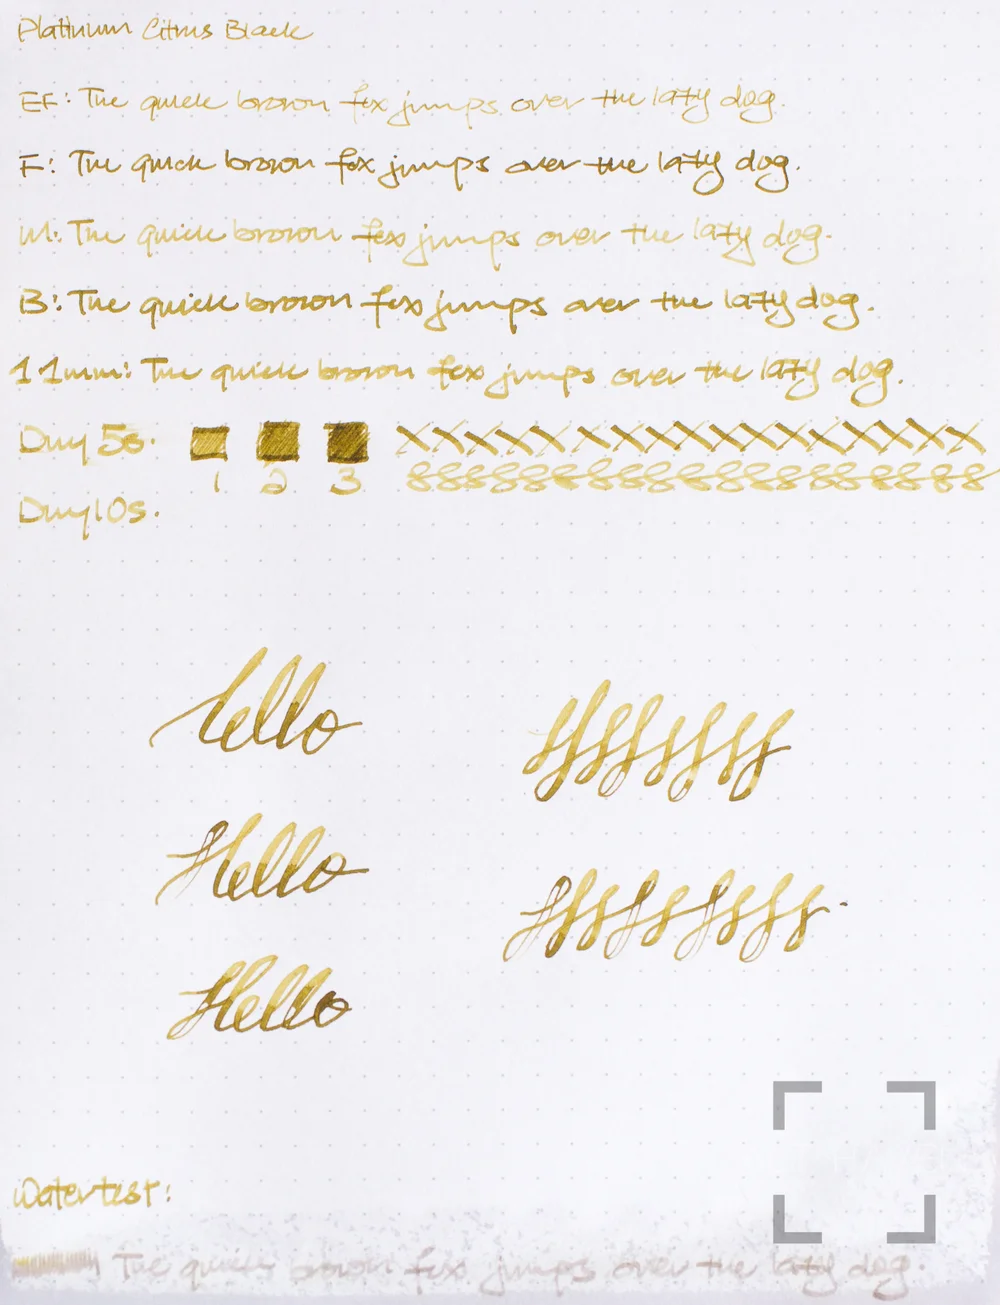 Platinum Citrus Black
EF: The quick brown fox jumps over the lazy dog.
F: The quick brown fox jumps over the lazy dog.
M: The quick brown fox jumps over the lazy dog.
B: The quick brown fox jumps over the lazy dog.
1.1mm: The quick brown fox jumps over the lazy dog.
Dry 5s.
1 2 3
Dry 10s.
hello
Hello
Hello
Water test:
The quick brown fox jumps over the lazy dog.